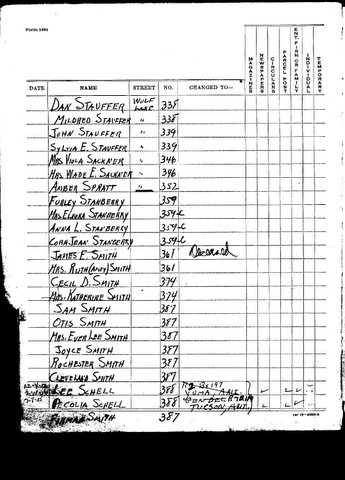 Form 1564
DATE NAME STREET NO. CHANGED TO— MAGAZINES NEWSPAPERS CIRCULARS PARCEL POST ENT. FIRM OR FAMILY INDIVIDUAL TEMPORARY
DAN STAUFFER WOLF LAKE 338
MILDRED STAUFFER " 338
JOHN STAUFFER " 339
SYLVIA E. STAUFFER " 339
MRS VIOLA SACKNER " 346
MRS. WADE E. SACKNER " 346
AMBER SPRATT " 352
FURLEY STANBERRY 359
MRS ELNORA STANBERRY 359-C
ANNA L. STANBERRY 359-C
CORA JEAN STANBERRY 359-C
JAMES F. SMITH 361 Deceased
MRS. RUTH (AMY) SMITH 361
CECIL D. SMITH 374
MRS. KATHERINE SMITH 374
SAM SMITH 387
OTIS SMITH 387
MRS. EVER LEE SMITH 387
JOYCE SMITH 387
ROCHESTER SMITH 387
CLEVELAND SMITH 387
LEE SCHELL 388 R2 Bx 197 YUMA, ARIZ.
PECOLIA SCHELL 388 TUCSON, ARIZ.
SMITH 387